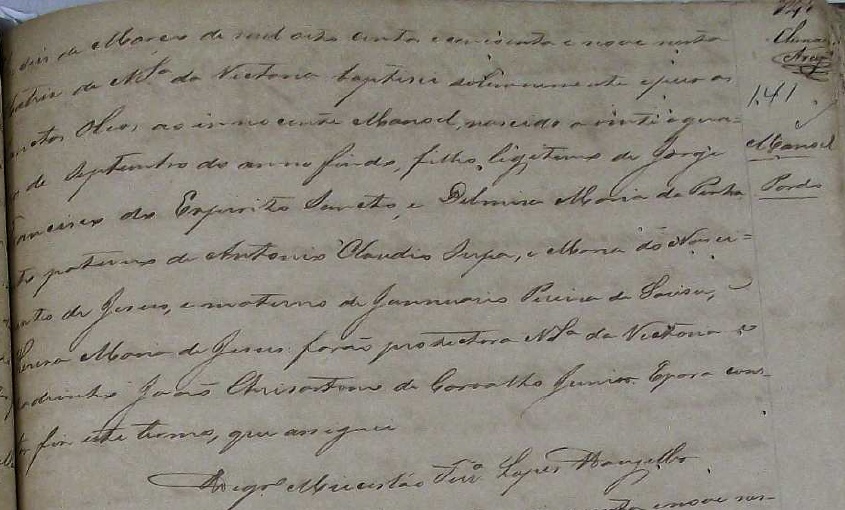 dois de Março de mil oito centos e cincoenta e nove nesta
Matriz de N. Sª. da Victoria baptisei solemnemente e puz os
Santos Oleos ao innocente Manoel, nascido a vinte e qua=
de Septembro do anno findo, filho ligitimo de Jorge
Francisco do Espirito Sancto, e Delmira Maria da Penha
paterno de Antonio Claudio Supa, e Maria do Nasci=
mento de Jesus, e materno de Jannuario Pereira de Sousa,
Maria de Jesus: forão protectora N. Sª. da Victoria e
padrinho João Chrisostomo de Carvalho Junior. E para cons=
fiz este termo, que assignei
Lopes
e nove nes=
141
Manoel
Pardo